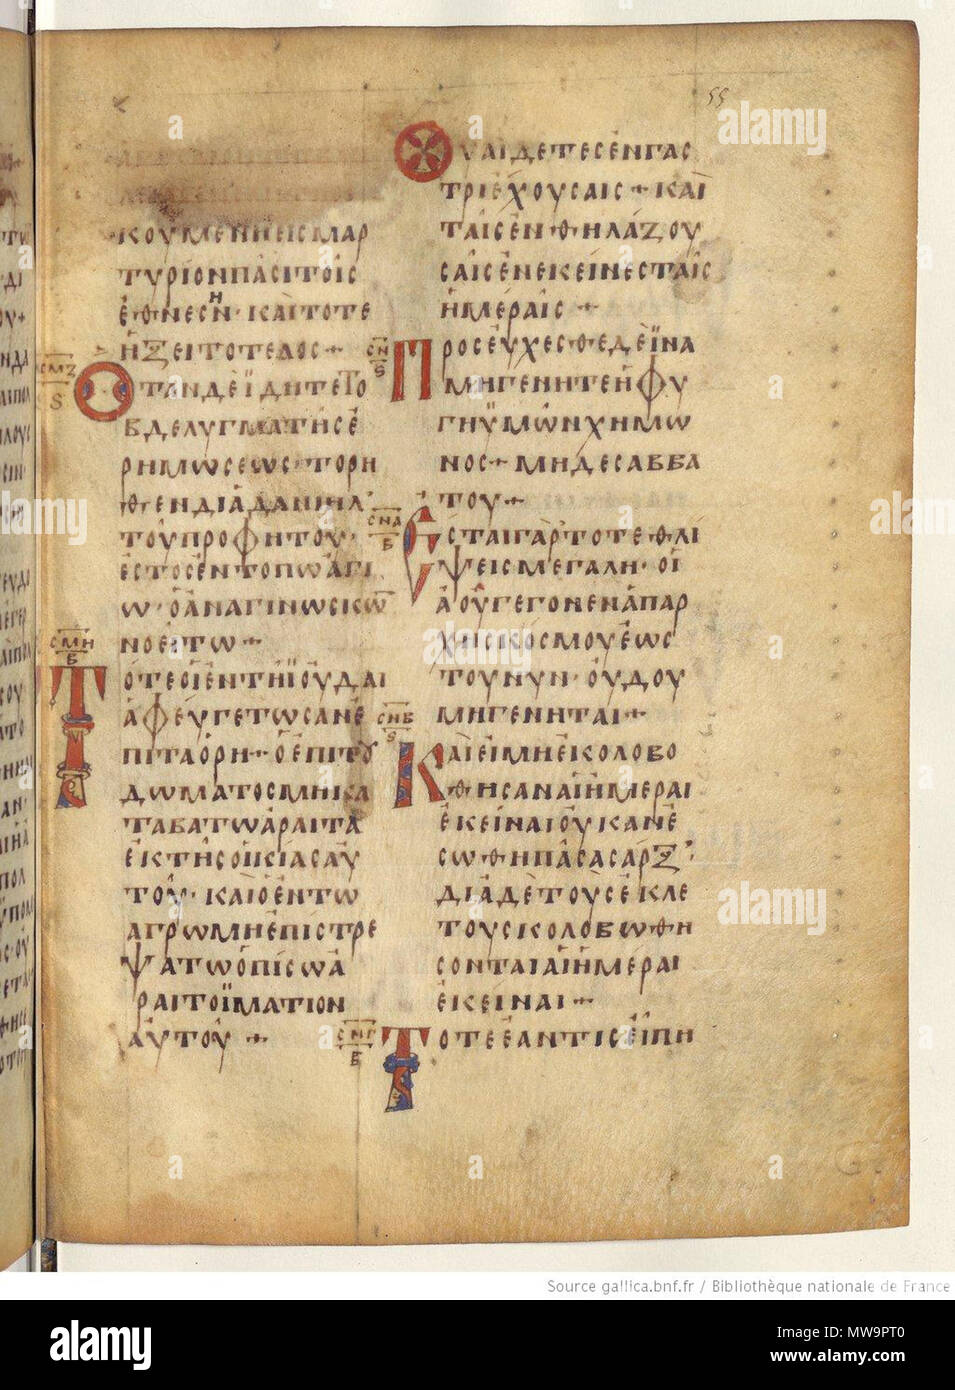 55
κουμενηεισμαρ
τυριονπασιτοισ
εθνεσιν·καιτοτε
ηξειτοτελοσ+
οτανδεϊδητετο
βδελυγματησε
ρημωσεωσ·τορη
θενδιαδανιηλ
τουπροφητου·
εστοσεντοπωαγι
ω·οαναγινωσκω
νοειτω+
τοτεοιεντηϊουδαι
αφευγετωσανε
πιταορη+οεπιτου
δωματοσμηκα
ταβατωαραιτα
εκτησοικιασαυ
του·καιοεντω
αγρωμηεπιστρε
ψατωοπισωα
ραιτοϊματιον
αυτου+
ουαιδεταισενγασ
τριεχουσαισ+και
ταισενθηλαζου
σαισενεκεινεσταισ
ημεραισ+
προσευχεσθεδεϊνα
μηγενητεηφυ
γηϋμωνχημω
νοσ+μηδεσαββα
του+
εσταιγαρτοτεθλι
ψεισμεγαλη·οι
αουγεγονεναπαρ
χησκοσμουεωσ
τουνυν·ουδου
μηγενηται+
καιειμηεκολοβο
θησαναιημεραι
εκειναιουκανε
σωθηπασασαρξ
διαδετουσεκλε
τουσκολοβωθη
σονταιαιημεραι
εκειναι+
τοτεεαντισειπη
σμζ
ς
σμη
β
σν
ς
σνα
β
σνβ
ς
σνγ
β
Source gallica.bnf.fr / Bibliothèque nationale de France
alamy
Image ID: MW9PT0
www.alamy.com